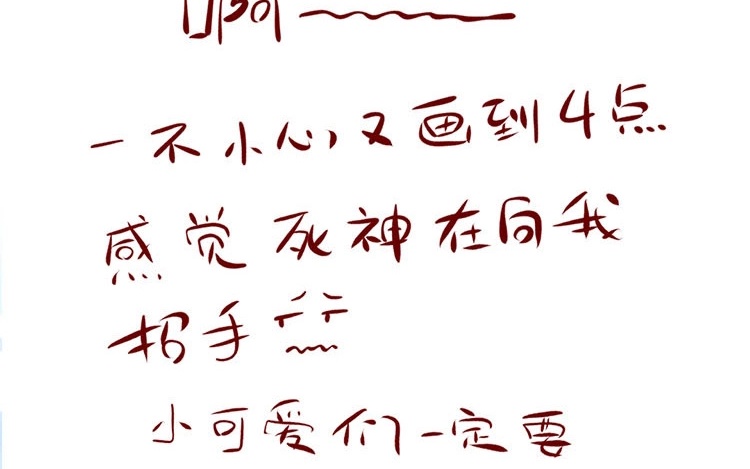 啊～
一不小心，又画到4点
感觉死神在向我
招手
小可爱们一定要